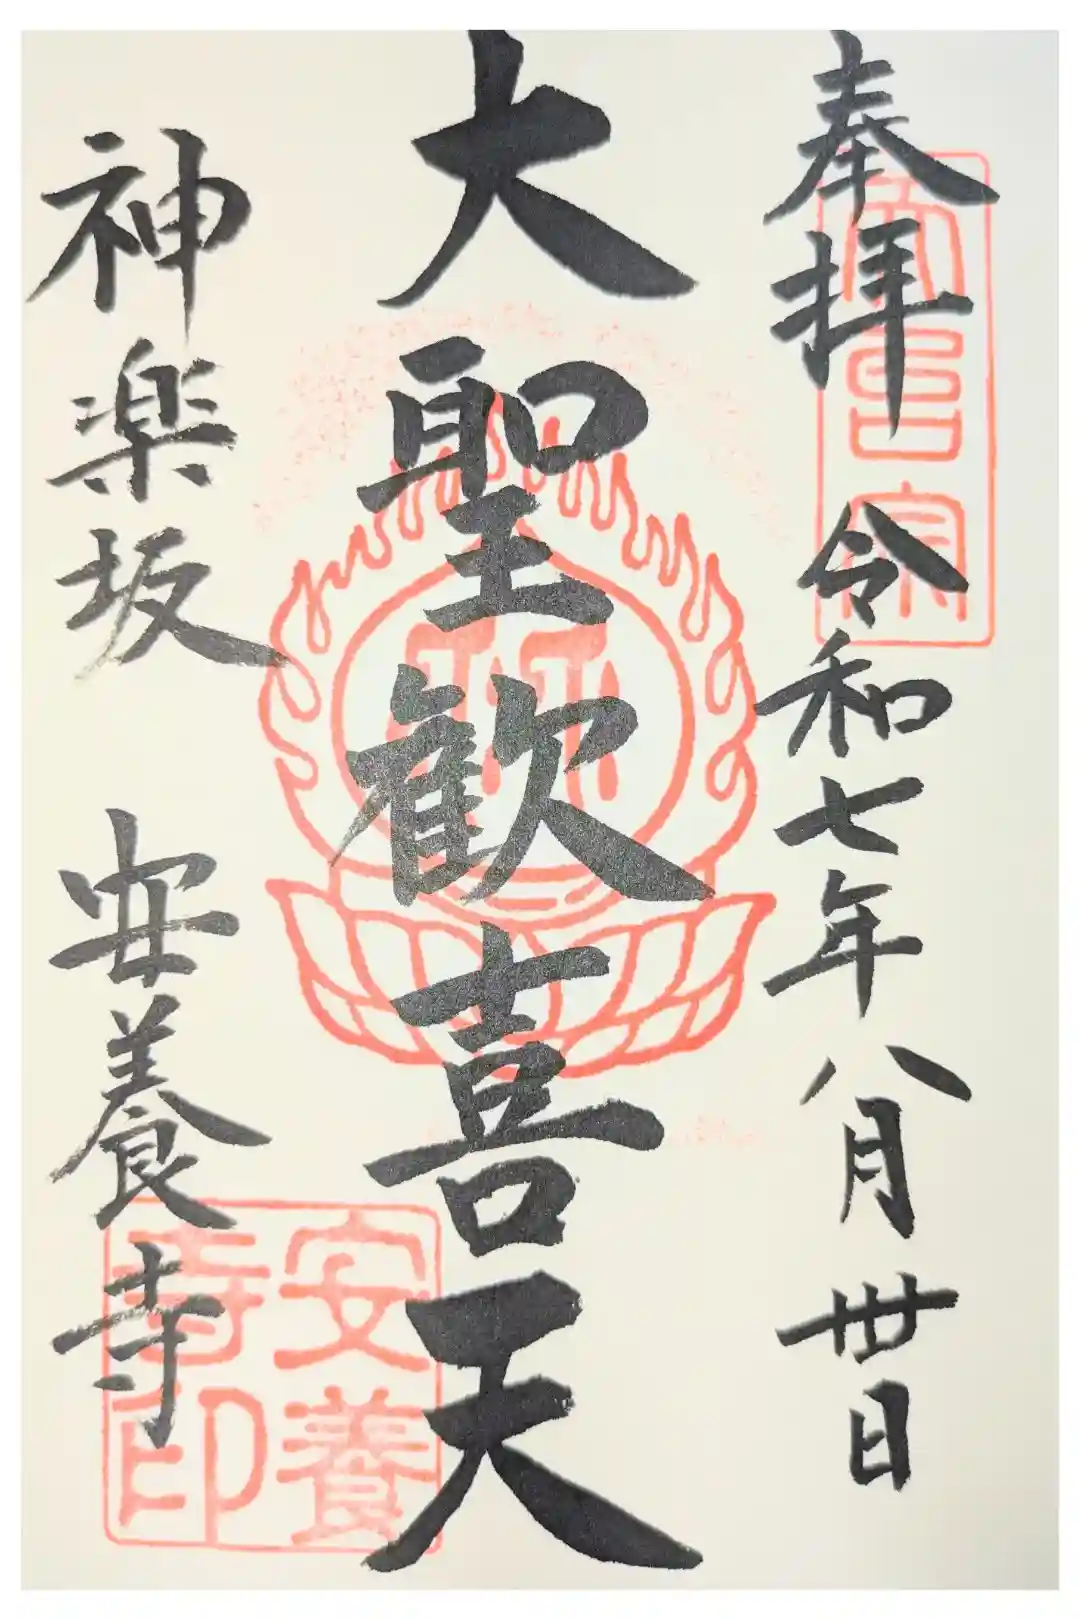 奉拝 令和七年八月丗日
大聖歓喜天
神楽坂 安養寺
真言宗
安養寺印